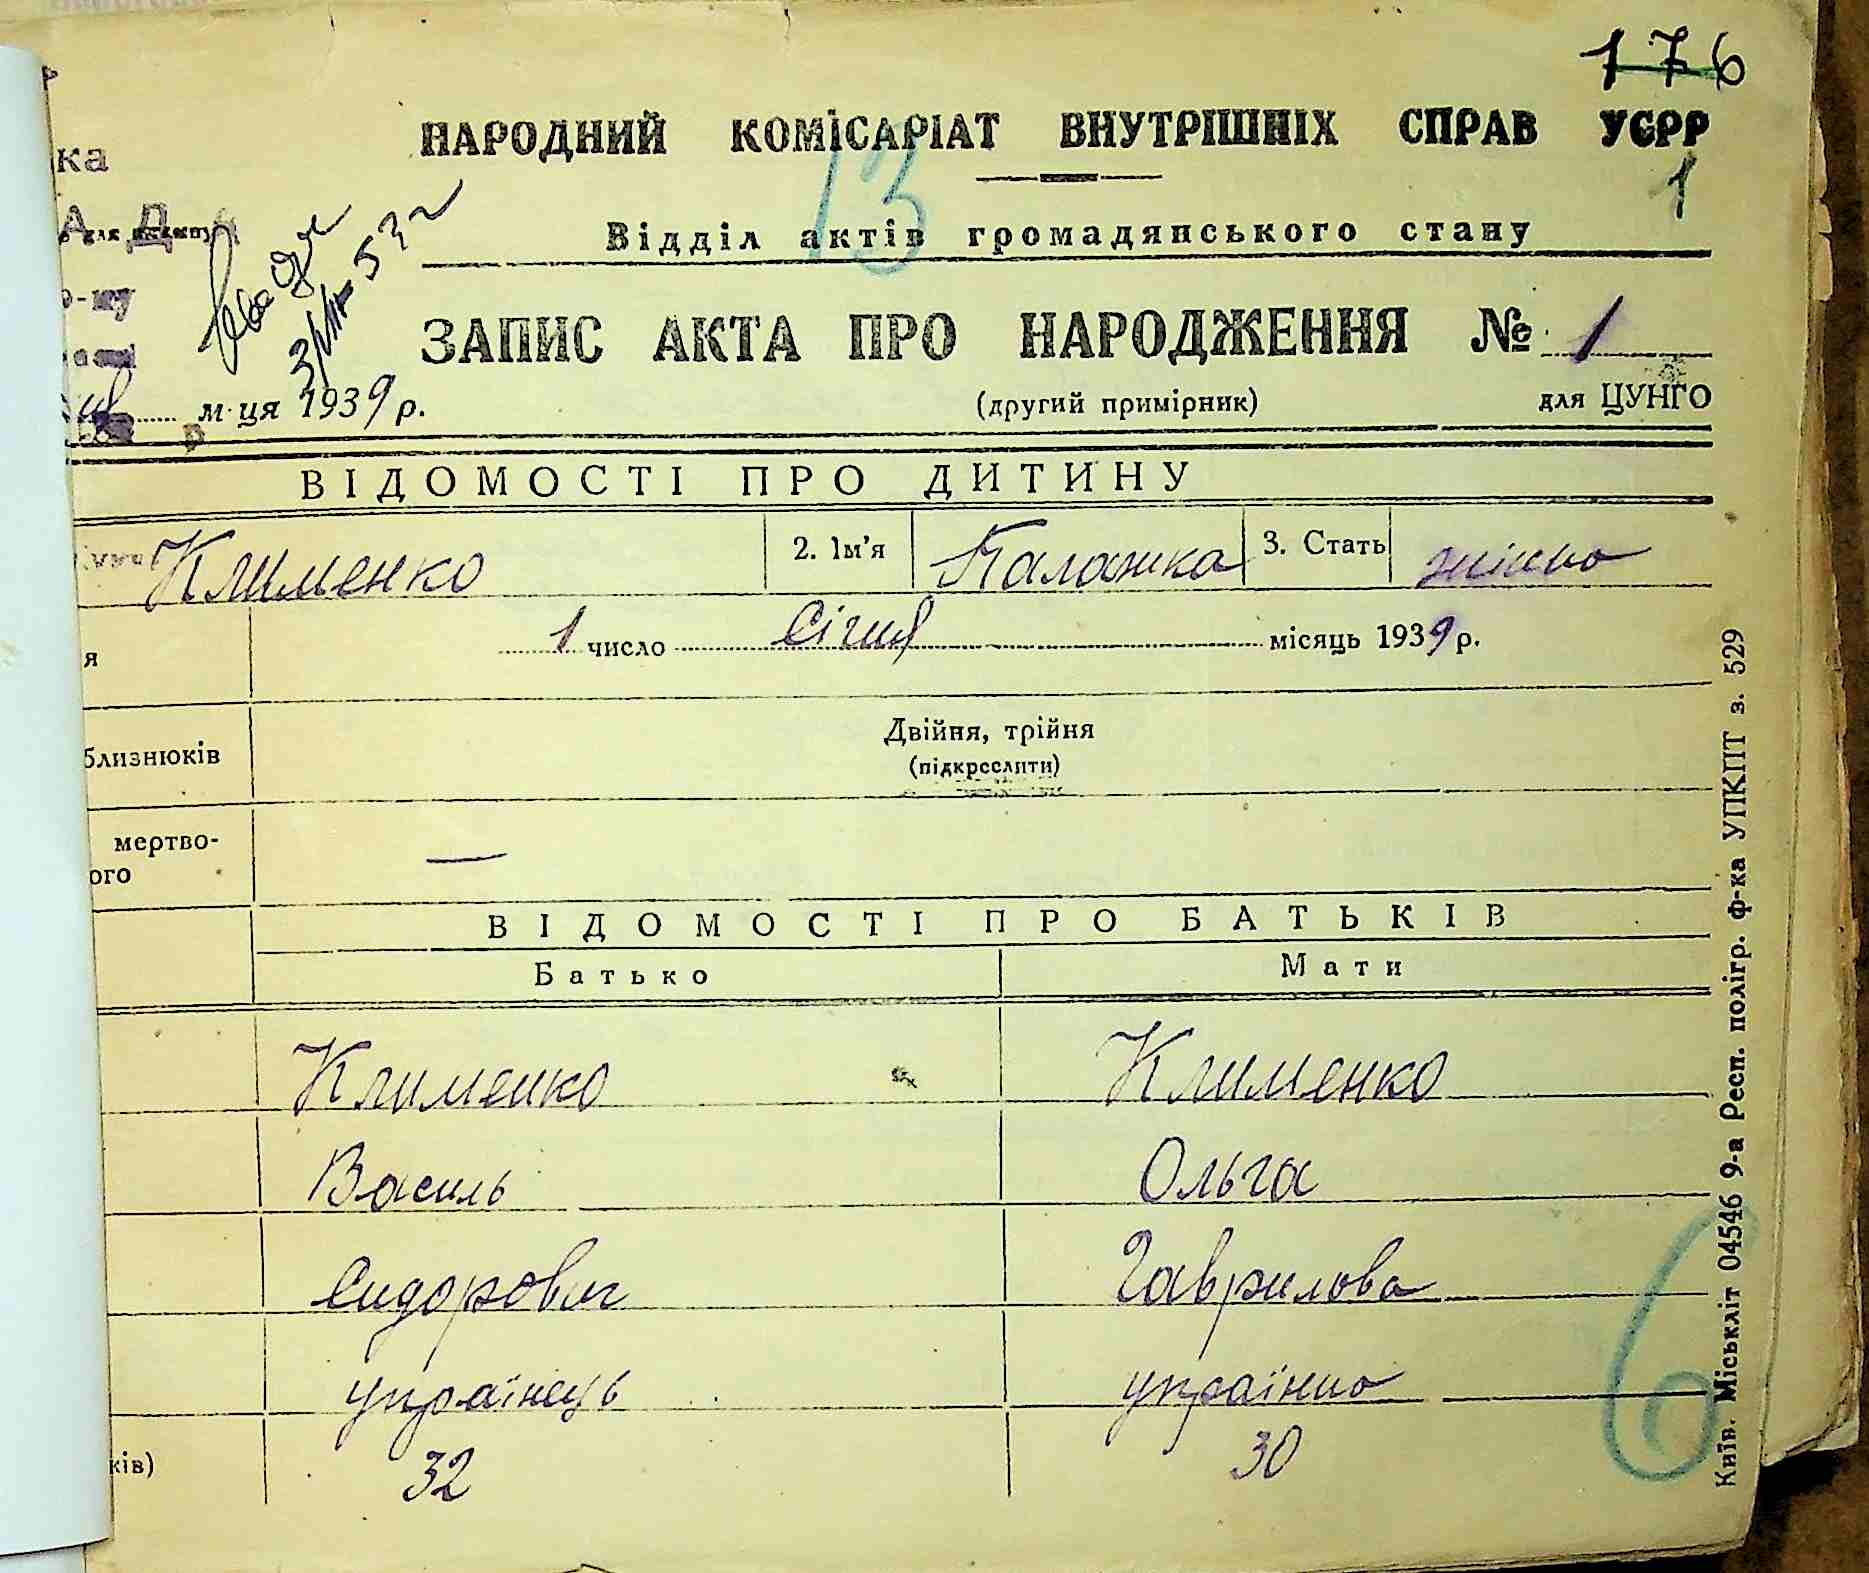 176
НАРОДНИЙ КОМІСАРІАТ ВНУТРІШНІХ СПРАВ УСРР
1
13
ка
Відділ актів громадянського стану
ЗАПИС АКТА ПРО НАРОДЖЕННЯ № 1
м-ця 1939 р.
(другий примірник)
для ЦУНГО
ВІДОМОСТІ ПРО ДИТИНУ
Клименко 2. Ім'я Палажка 3. Стать жіноча
я 1 число Січня місяць 1939 р.
близнюків Двійня, трійня
(підкреслити)
мертво-
ого —
ВІДОМОСТІ ПРО БАТЬКІВ
Батько Мати
Клименко Клименко
Василь Ольга
Сидорович Гаврилова
українець українка
ків) 32 30
6
Київ. Міськліт 04546 9-а Респ. полігр. ф-ка УПКПТ з. 529